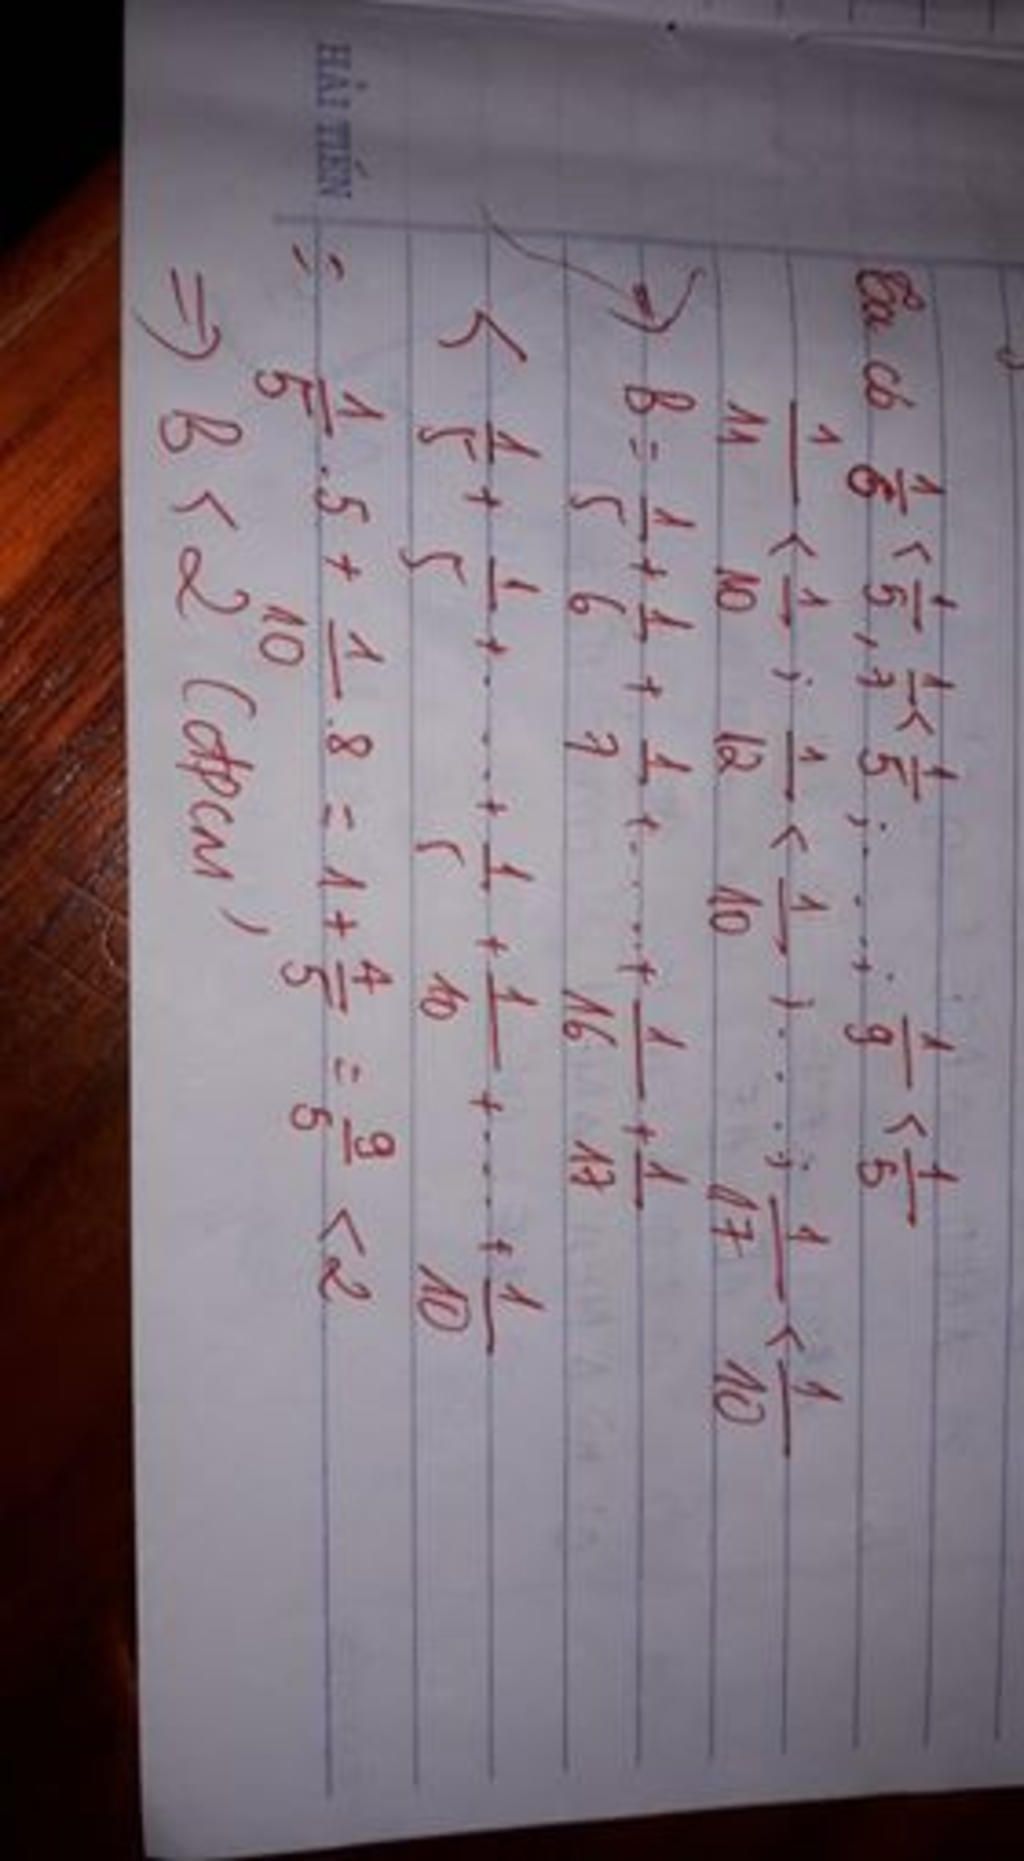 Ta có 1/6 < 1/5, 1/7 < 1/5 ; ..... ; 1/9 < 1/5
1/11 < 1/10 ; 1/12 < 1/10 ; .... ; 1/17 < 1/10
=> B = 1/5 + 1/6 + 1/7 + ..... + 1/16 + 1/17
< 1/5 + 1/5 + ..... + 1/5 + 1/10 + ..... + 1/10
= 1/5 . 5 + 1/10 . 8 = 1 + 4/5 = 9/5 < 2
=> B < 2 (đpcm)
HẢI TIẾN